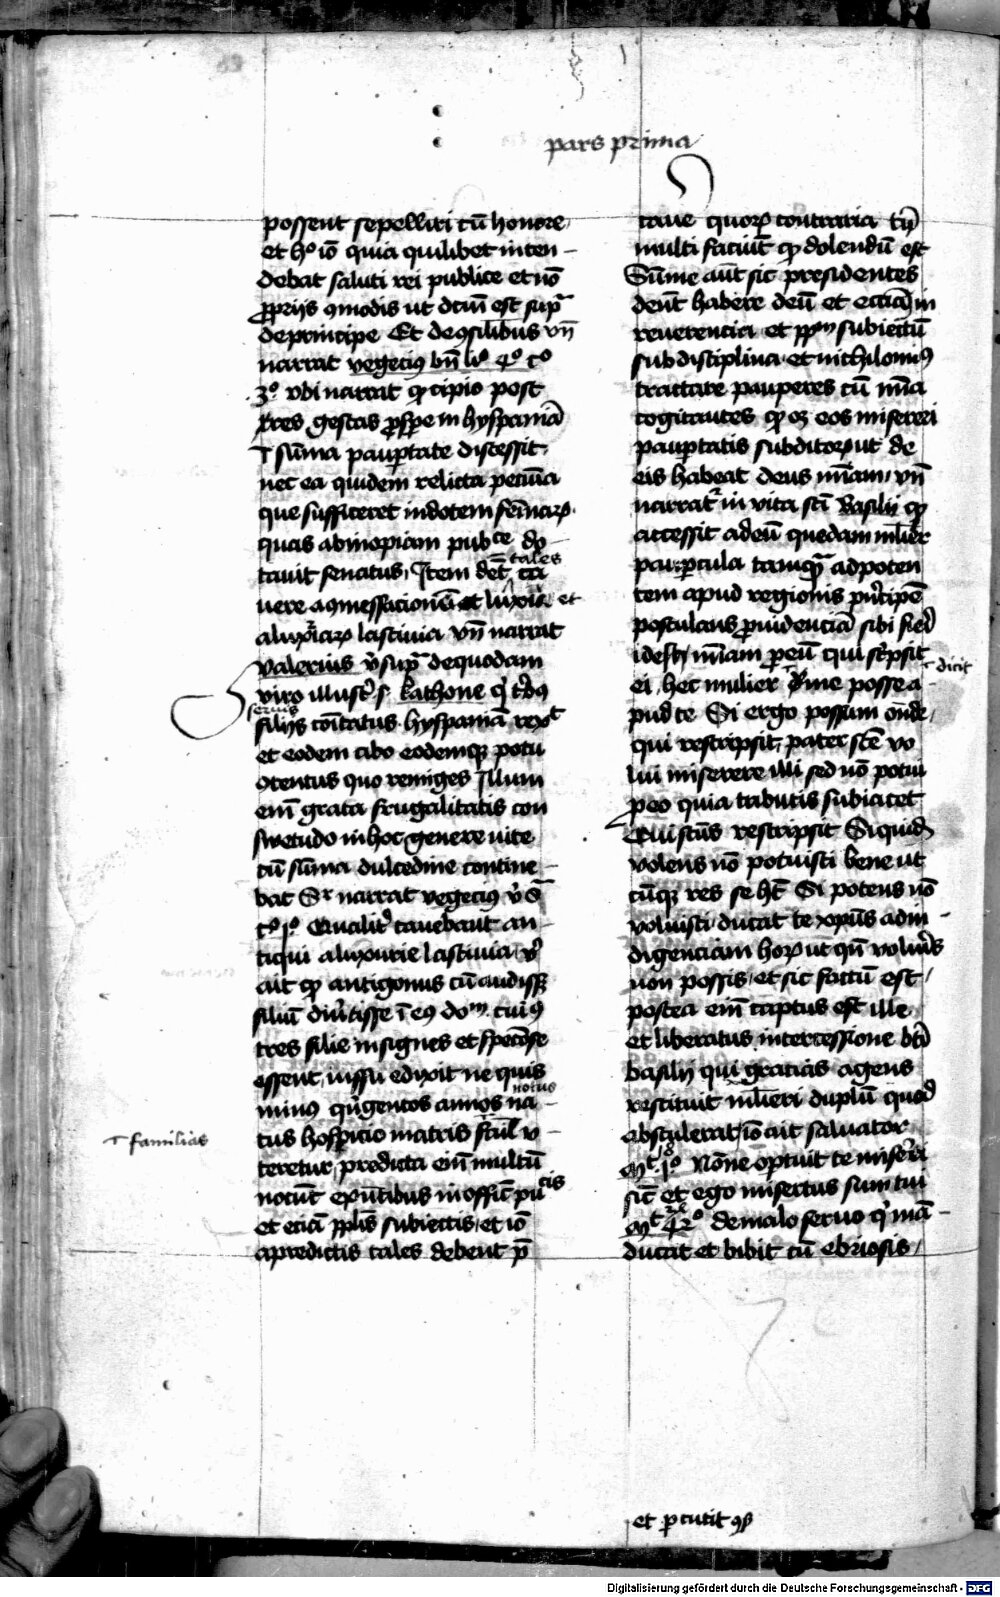 pars prima
possent sepelliri cū honore
et hº iō quia quilibet inten-
debat saluti rei publice et nō
pprijs 9modis ut dcm̄ est sup̄
de principe Et de 9silibus vn̄
narrat vegecius li° 4° c°
3° vbi narrat ꝙ cipio post
res gestas pspe in hyspania
ī sūma paupertate discessit
nec ea quidem relicta pecūia
que sufficeret in dotem
quas ab inopiam pubce do-
tauit senatus Item det tales
uere a 9messacionē et luxū et
lasciuia vn̄ narrat
valerius v̄ sup̄ de quodam
viro illustr s kathone
serius
filijs comitatus hyspaniā rexit
et eodem cibo eodemqꝫ potu
9tentus quo remiges Illum
enī grata frugalitatis con
swetudo in hoc genere uite
cū sūma dulcedine contine-
bat narrat vegecius
c° 1° Qualit̄ cauebant an-
tiqui a luxurie lasciuia v̄
ait ꝙ antigonus cū audisset
filiū diu̇tisse ī e9 dom cui9
tres filie insignes et speciose
essent iussu edixit ne quis
notus
min9 qu̇gentos annos na-
⊤ familias
tus hospicio matris v-
teretur predicta enī multū
nocent in offic pu cis
et eciā pplis subiectis et iō
a predictis tales debent p̄
caue quoꝝ contraria
multi faciūt ꝙ dolendū est
Sūme aūt sic presidentes
debent habere deū et ecciā in
reuerencia et ppm subiectū
sub disciplina et nichilomi9
tractare pauperes cū mīa
cogitantes ꝙ oꝫ eos misereri
paupertatis subditoꝝ ut de
eis habeat deus mīam vn̄
narratr in vita sci Basilij ꝙ
accessit ad eū quedam mulier
paupercula tamqꝫ ad poten
tem apud regionis pn̄cipē
postulans puidenciā sibi fieri
idest mīam p eū qui scripsit
ei hec mulier dicit me posse a-
pud te Si ergo possum onde
qui rescripsit pater scē vo
lui miserere illi sed nō potui
p eo quia tributis subiacet
Cui scūs rescripsit Siquid
volens nō potuisti bene ut
cūqꝫ res se hꝫ Si potens nō
voluisti ducat te xpus ad in-
digenciam horum ut qn̄ volueris
non possis et sic factū est
postea enī captus est ille
et liberatus intercessione bti
basilij qui gracias agens
restituit mulieri duplū quod
abstulerat iō ait saluator
mt 18° Nōne oportuit te misereri
sicut et ego misertus sum tui
mt 24° de malo seruo qui mā-
ducat et bibit cū ebriosis
et p cutit
Digitalisierung gefördert durch die Deutsche Forschungsgemeinschaft - DFG